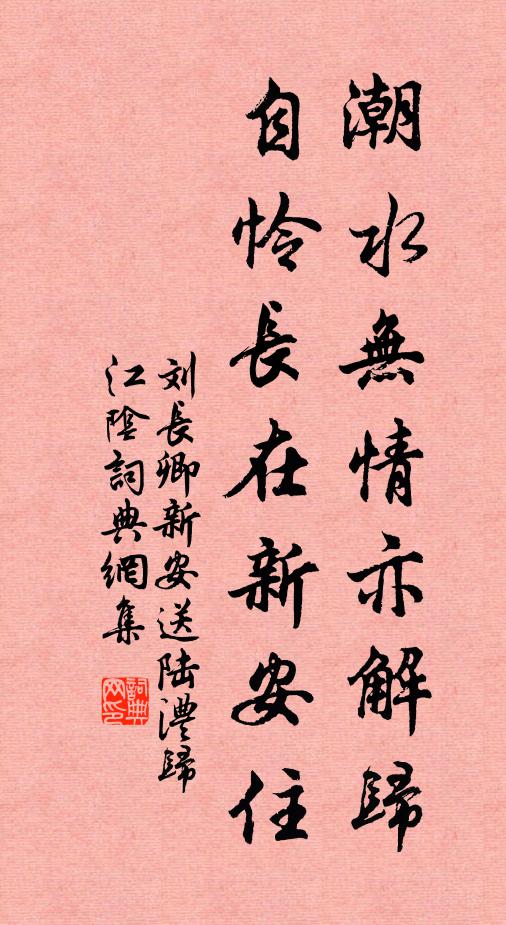 潮水無情亦解歸
自怜長在新安住
刘長卿新安送陆澧歸
江陰詞典網集
詞典网印